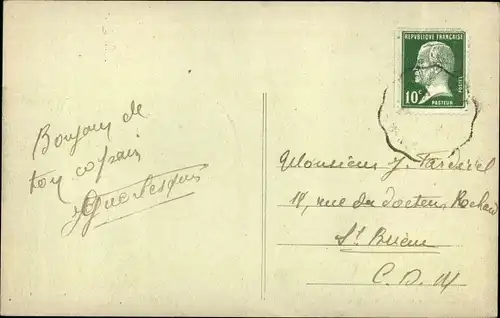 REPUBLIQUE FRANÇAISE
POSTES
10c
PASTEUR
Bonjour de
ton copain
Monsieur J.
18, rue du docteur Rochard
St Brieuc
C. D. N